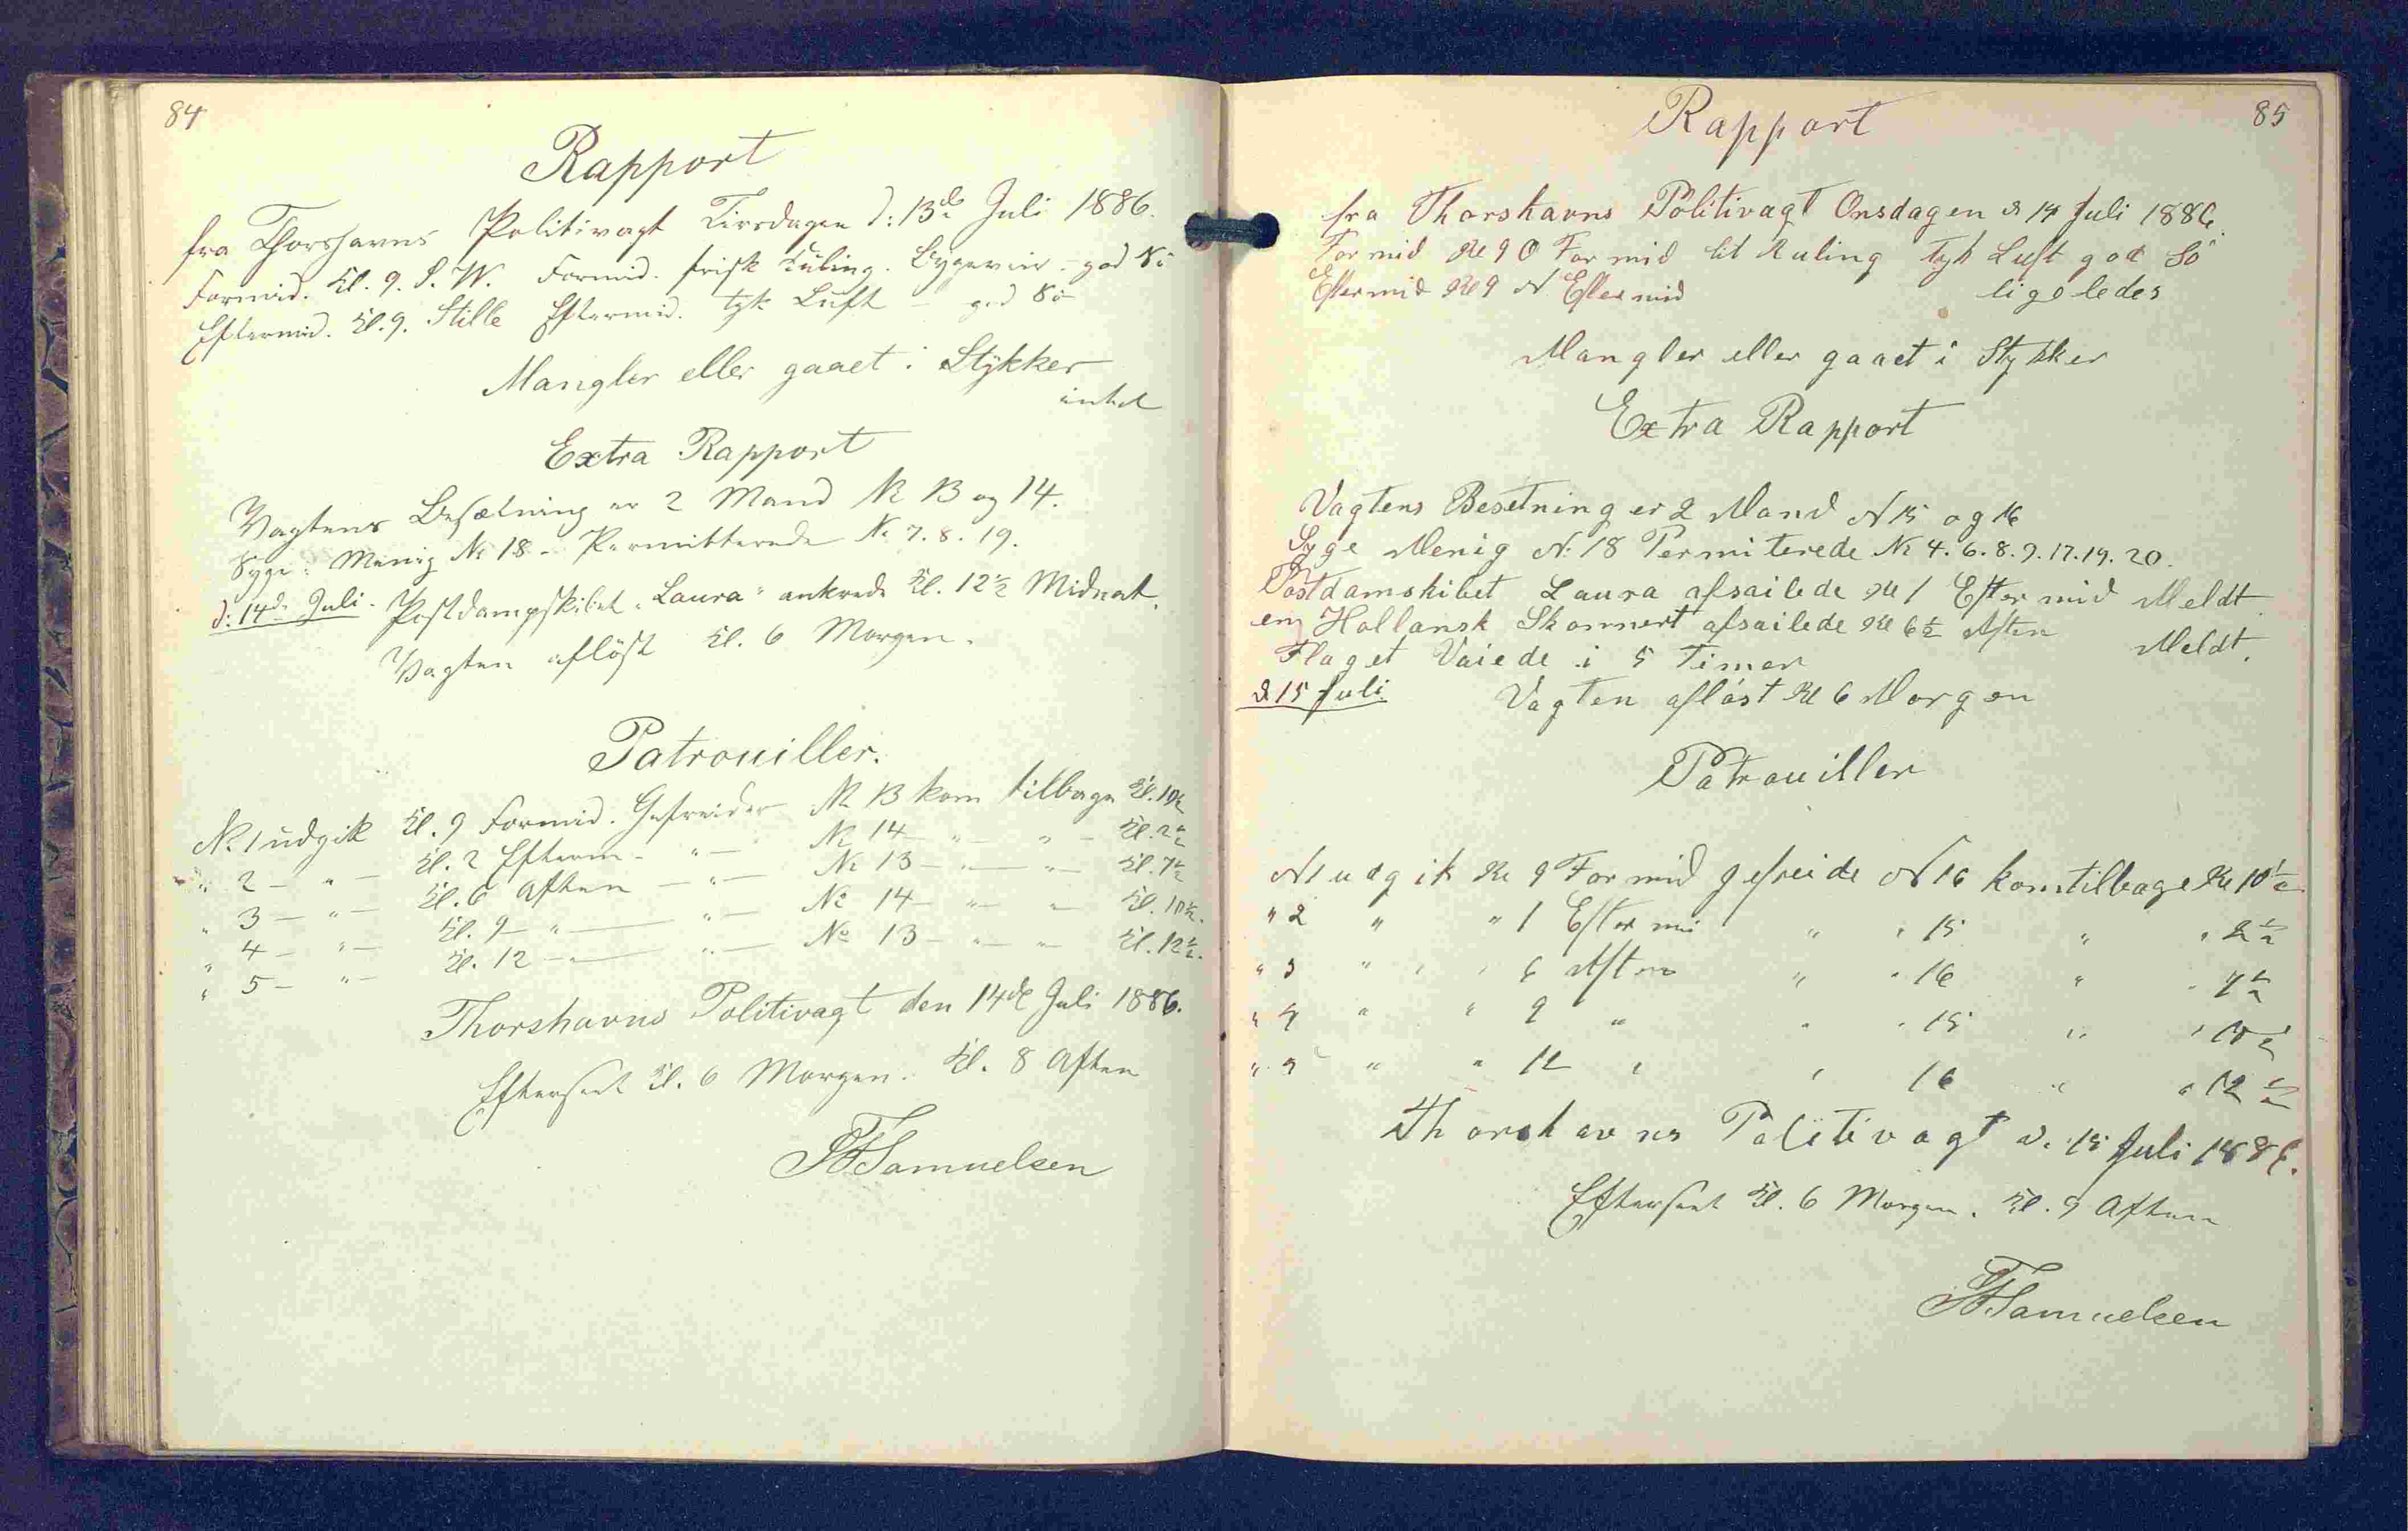 84
Rapport
fra Thorshavns Politivagt Tirsdagen d: 13de Juli 1886.
Formid. Kl. 9. S.W. Formid. frisk Kuling. Bygeveir - god Sö
Eftermid. Kl. 9. Stille Eftermid. tyk Luft - god Sö
Mangler eller gaaet i Stykker
intet
Extra Rapport
Vagtens Besætning er 2 Mand № 13 og 14.
Syge: Menig № 18 - Permitterede № 7. 8. 19.
d: 14de Juli. Postdampskibet "Laura" ankrede Kl. 12½ Midnat.
Vagten aflöst Kl. 6 Morgen.
Patrouiller.
№ 1 udgik Kl. 9 Formid. Gefreider № 13 kom tilbage Kl. 10½
" 2 - " - Kl. 2 Efterm. - " - № 14 - " - " - Kl. 2½
" 3 - " - Kl. 6 Aften - " - № 13 - " - " - Kl. 7½
" 4 - " - Kl. 9 - " - " - № 14 - " - " - Kl. 10½.
" 5 - " - Kl. 12 - " - " - № 13 - " - " - Kl. 12½.
Thorshavns Politivagt den 14de Juli 1886.
Efterseet Kl. 6 Morgen. Kl. 8 Aften
Samuelsen
85
Rapport
fra Thorshavns Politivagt Onsdagen d 14 Juli 1886.
Formid Kl 9 O Formid lit Kuling Tyk Luft god Sö
Eftermid Kl 9 N Eftermid ligeledes
Mangler eller gaaet i Stykker
Extra Rapport
Vagtens Besetning er 2 Mand N 15 og 16
Syge Menig N: 18 Permiterede № 4. 6. 8. 9. 17. 19. 20.
Postdamskibet Laura afsailede Kl 1 Eftermid Meldt
en Hollansk Skonnert afsailede Kl 6½ Aften Meldt.
Flaget Vaiede i 5 Timer
d 15 Juli Vagten aflöst Kl 6 Morgen
Patrouiller
N 1 udgik Kl 9 Formid gefreide N 16 kom tilbage Kl 10½
" 2 " " 1 Eftermi " " 15 " " 2½
" 3 " " 6 Aften " " 16 " " 7½
" 4 " " 9 " " " 15 " " 10½
" 5 " " 12 " " 16 " " 12½
Thorshavns Politivagt d. 15 Juli 1886.
Efterseet Kl. 6 Morgen. Kl. 9 Aften
Samuelsen